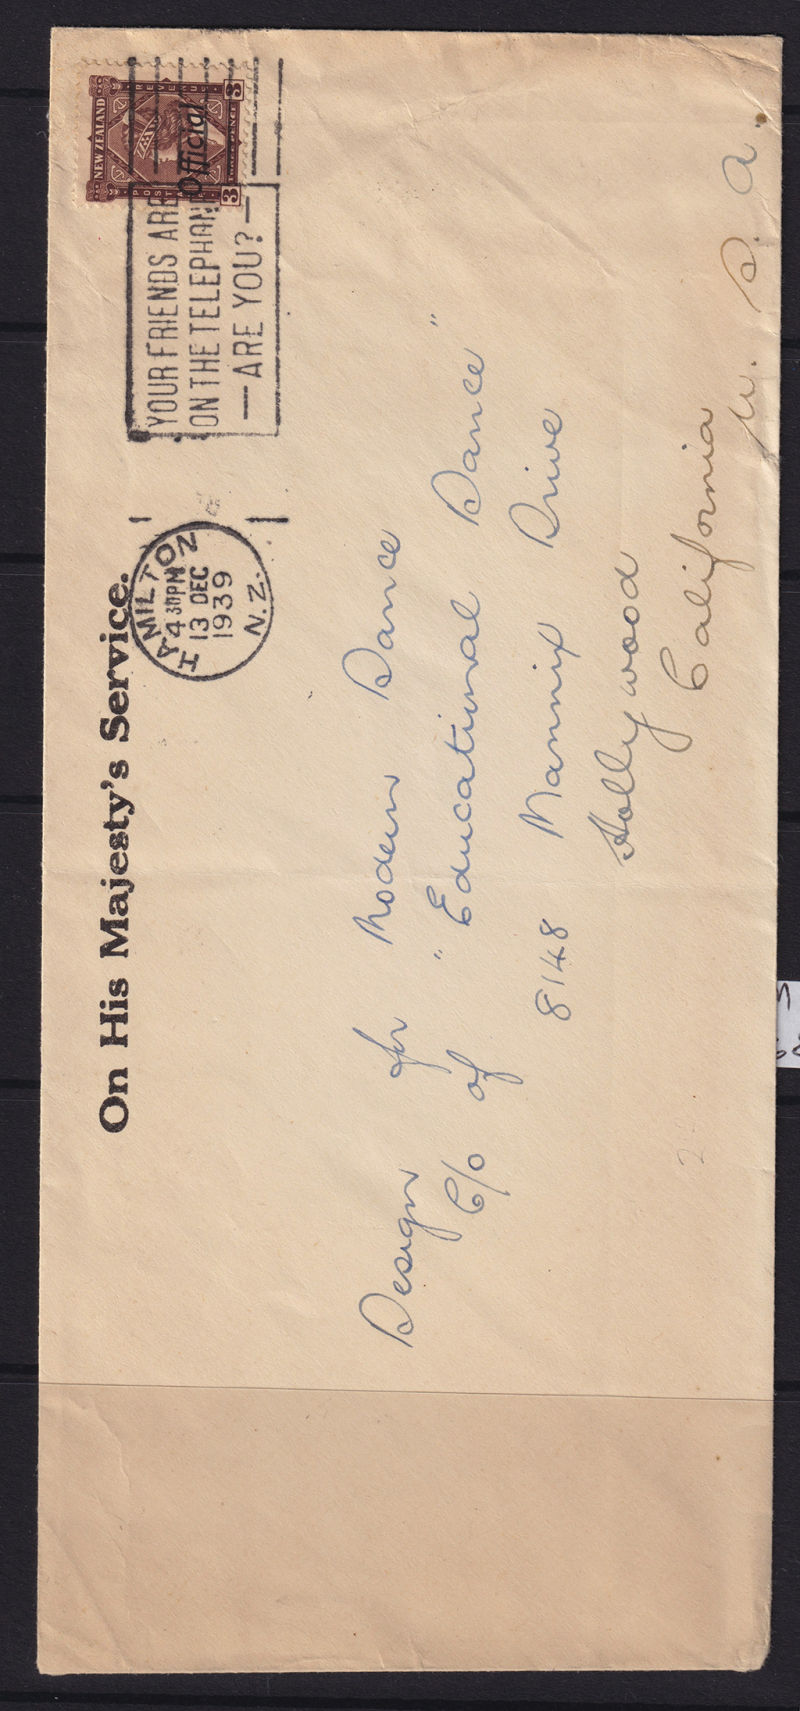 On His Majesty's Service.
HAMILTON
4 30PM
13 DEC
1939
N.Z.
YOUR FRIENDS ARE
ON THE TELEPHONE
— ARE YOU? —
NEW ZEALAND
REVENUE
POSTAGE
3 PENCE 3
Official
Design for Modern Dance
C/o "Educational Dance"
of 8148 Mannix Drive
Hollywood
California
U. S. A.